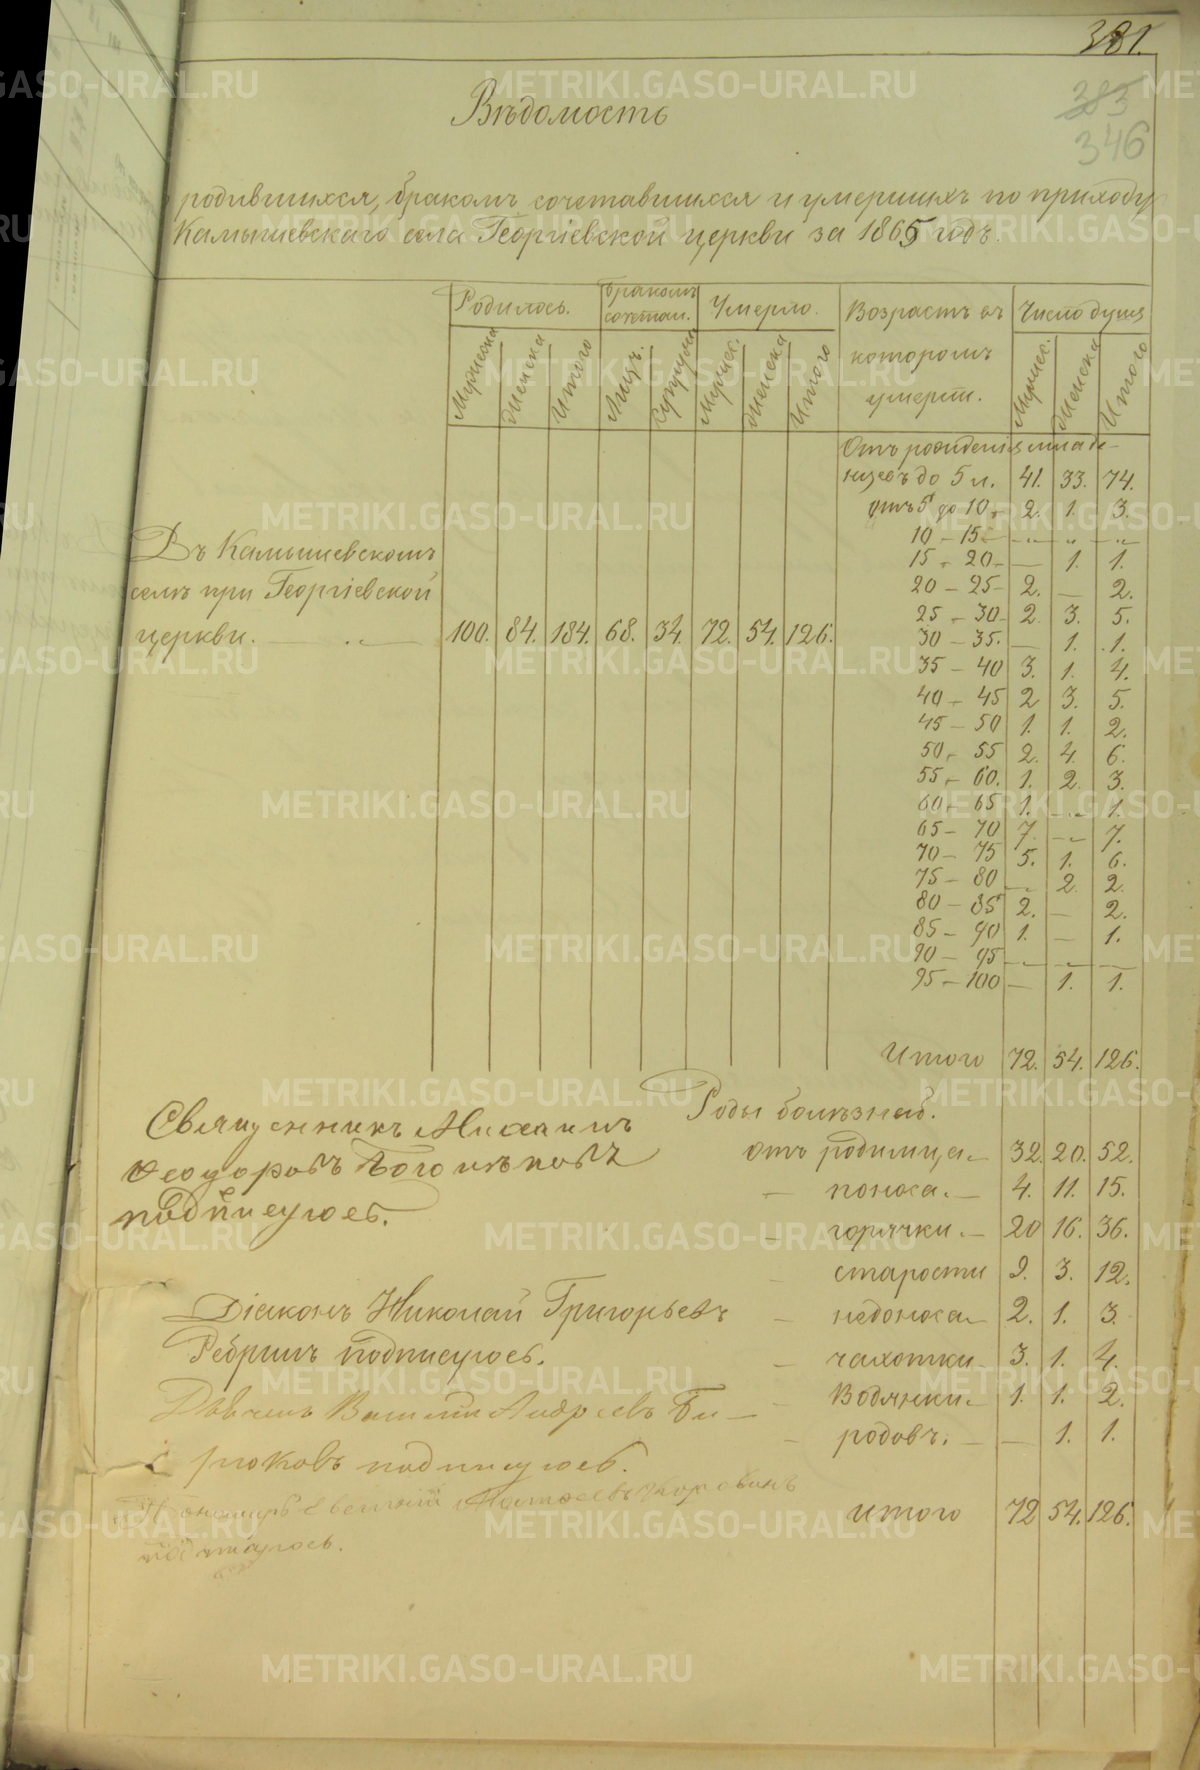 381.
383
346
Вѣдомость
родившихся, бракомъ сочетавшихся и умершихъ по приходу
Камышевскаго села Георгіевской церкви за 1865 годъ.
Родилось. Бракомъ сочетал. Умерло. Возрастъ въ которомъ умерли. Число душъ
Мужеска Женска Итого Лицъ. Супруж Мужск. Женска Итого Мужск. Женска Итого
Отъ рожденія младе-
нцевъ до 5 л. 41. 33. 74.
отъ 5 до 10 2. 1. 3.
10 – 15 – „ – „ – „ –
15 – 20 – 1. 1.
20 – 25 2. – 2.
25 – 30 2 3. 5.
30 – 35. – 1. 1.
35 – 40 3. 1. 4.
40 – 45 2 3. 5.
45 – 50 1. 1. 2.
50 – 55 2. 4. 6.
55 – 60. 1. 2. 3.
60 – 65 1. – „ – 1.
65 – 70 7. – „ – 7.
70 – 75 5. 1. 6.
75 – 80 – 2. 2.
80 – 85 2. – 2.
85 – 90 1. – 1.
90 – 95 – „ – „ –
95 – 100 – 1. 1.
Въ Камышевскомъ
селѣ при Георгіевской
церкви. – „ – 100. 84. 184. 68. 34. 72. 54. 126.
Итого 72. 54. 126.
Роды болѣзней.
отъ родимица – 32. 20. 52.
– поноса. – 4. 11. 15.
– горячки. – 20 16. 36.
– старости 9. 3. 12.
– недоноса – 2. 1. 3.
– чахотки – 3. 1. 4.
– Водянки. – 1. 1. 2.
– родовъ. – – 1. 1.
Итого 72 54. 126.
Священникъ Михаилъ
Феодоровъ Боголѣповъ
подписуюсь.
Діаконъ Николай Григорьевъ
Ребринъ подписуюсь.
Дьячекъ Василій Андреевъ Би-
рюковъ подписуюсь.
Пономарь Евгеній
подписуюсь.
METRIKI.GASO-URAL.RU